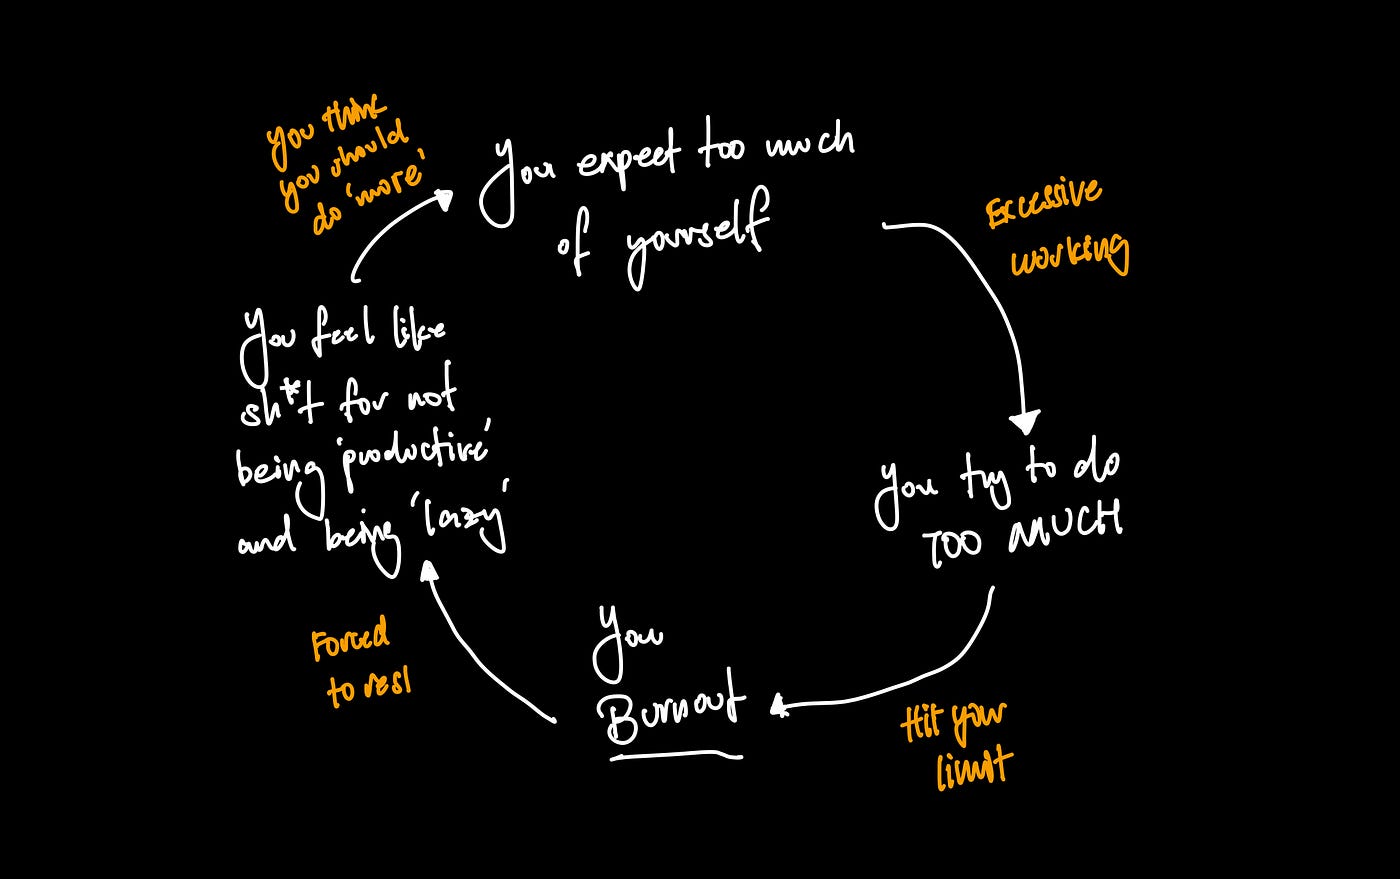 You think
you should
do 'more'
You expect too much
of yourself
Excessive
working
You try to do
TOO MUCH
Hit your
limit
You
Burnout
Forced
to rest
You feel like
sh*t for not
being 'productive'
and being 'lazy'